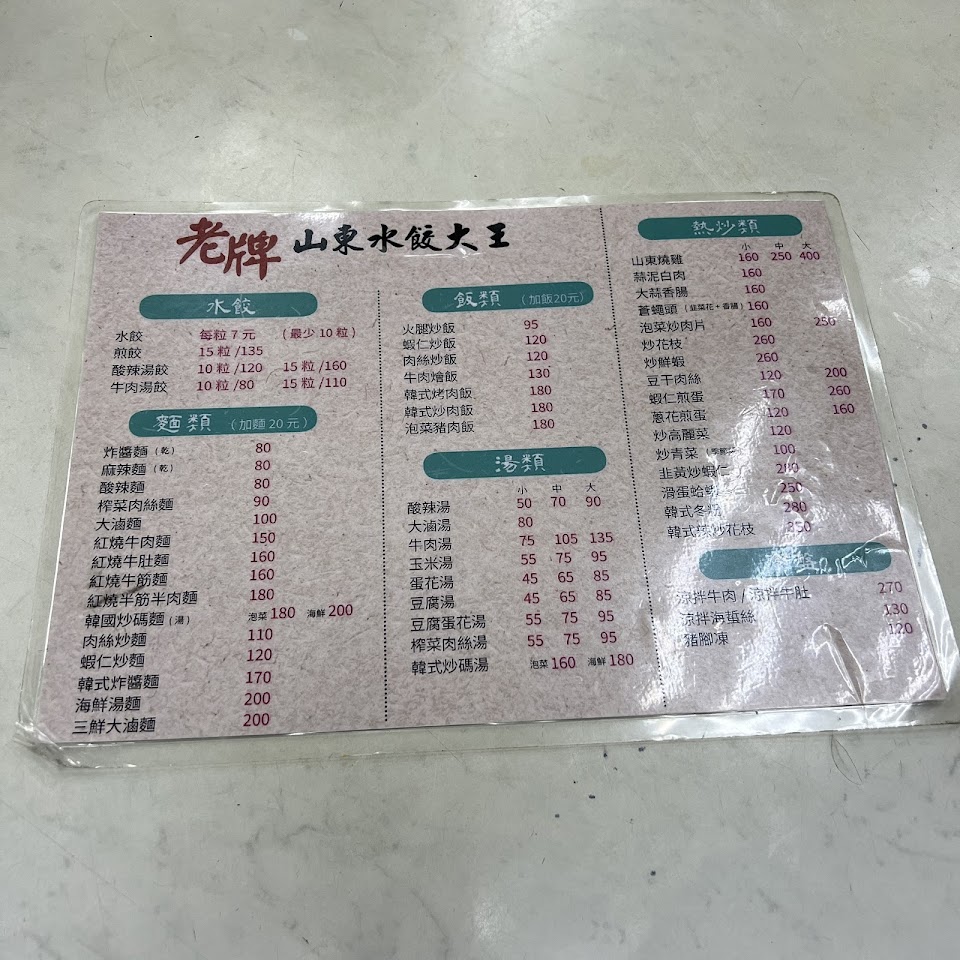 老牌 山東水餃大王
水餃
水餃 每粒 7 元 (最少 10 粒)
煎餃 15 粒 /135
酸辣湯餃 10 粒 /120 15 粒 /160
牛肉湯餃 10 粒 /80 15 粒 /110
麵類 (加麵 20 元)
炸醬麵(乾) 80
麻辣麵(乾) 80
酸辣麵 80
榨菜肉絲麵 90
大滷麵 100
紅燒牛肉麵 150
紅燒牛肚麵 160
紅燒牛筋麵 160
紅燒半筋半肉麵 180
韓國炒碼麵(湯) 泡菜 180 海鮮 200
肉絲炒麵 110
蝦仁炒麵 120
韓式炸醬麵 170
海鮮湯麵 200
三鮮大滷麵 200
飯類 (加飯20元)
火腿炒飯 95
蝦仁炒飯 120
肉絲炒飯 120
牛肉燴飯 130
韓式烤肉飯 180
韓式炒肉飯 180
泡菜豬肉飯 180
湯類
小 中 大
酸辣湯 50 70 90
大滷湯 80
牛肉湯 75 105 135
玉米湯 55 75 95
蛋花湯 45 65 85
豆腐湯 45 65 85
豆腐蛋花湯 55 75 95
榨菜肉絲湯 55 75 95
韓式炒碼湯 泡菜 160 海鮮 180
熱炒類
小 中 大
山東燒雞 160 250 400
蒜泥白肉 160
大蒜香腸 160
蒼蠅頭(韭菜花+香腸) 160
泡菜炒肉片 160 250
炒花枝 260
炒鮮蝦 260
豆干肉絲 120 200
蝦仁煎蛋 160 260
蔥花煎蛋 120 160
炒高麗菜 120
炒青菜 100
韭黃炒蝦仁 280
滑蛋蛤 250
韓式冬粉 280
韓式辣炒花枝 350
盤
涼拌牛肉 / 涼拌牛肚 270
涼拌海蜇絲 130
豬腳凍 120